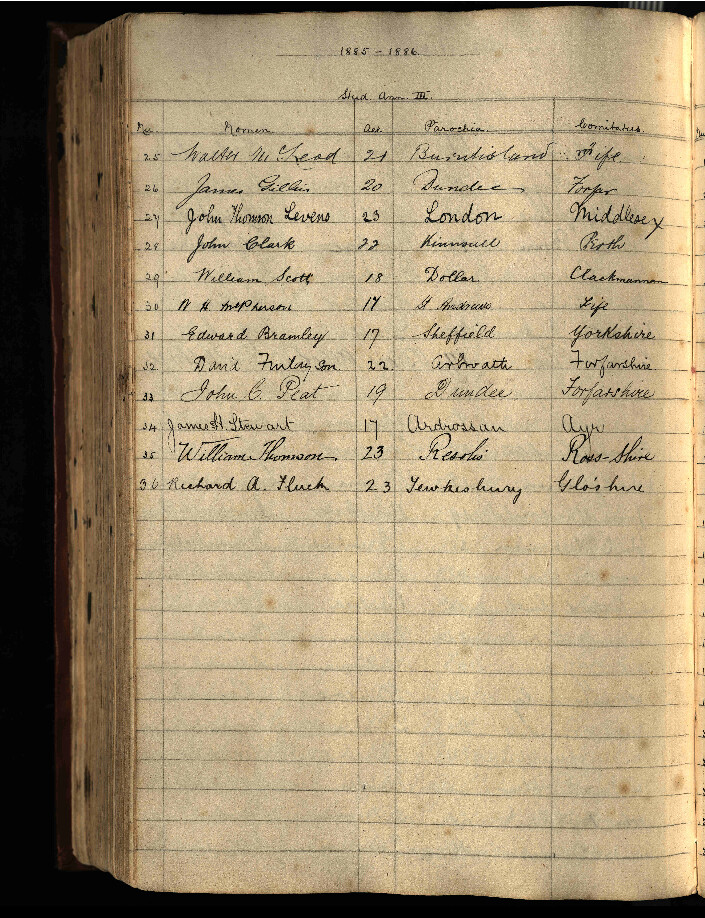 1885 - 1886.
Stud. Ann. III.
No. Nomen. Aet. Parochia. Comitatus.
25 Walter McLeod 21 Burntisland Fife
26 James Gillies 20 Dundee Forfar
27 John Thomson Levens 23 London Middlesex
28 John Clark 22 Kinnoull Perth
29 William Scott 18 Dollar Clackmannan
30 W H McPherson 17 St Andrews Fife
31 Edward Bramley 17 Sheffield Yorkshire
32 David Finlayson 22 Arbroath Forfarshire
33 John C. Peat 19 Dundee Forfarshire
34 James H. Stewart 17 Ardrossan Ayr
35 William Thomson 23 Resolis Ross-Shire
36 Richard A. Fluck 23 Tewkesbury Glo'shire